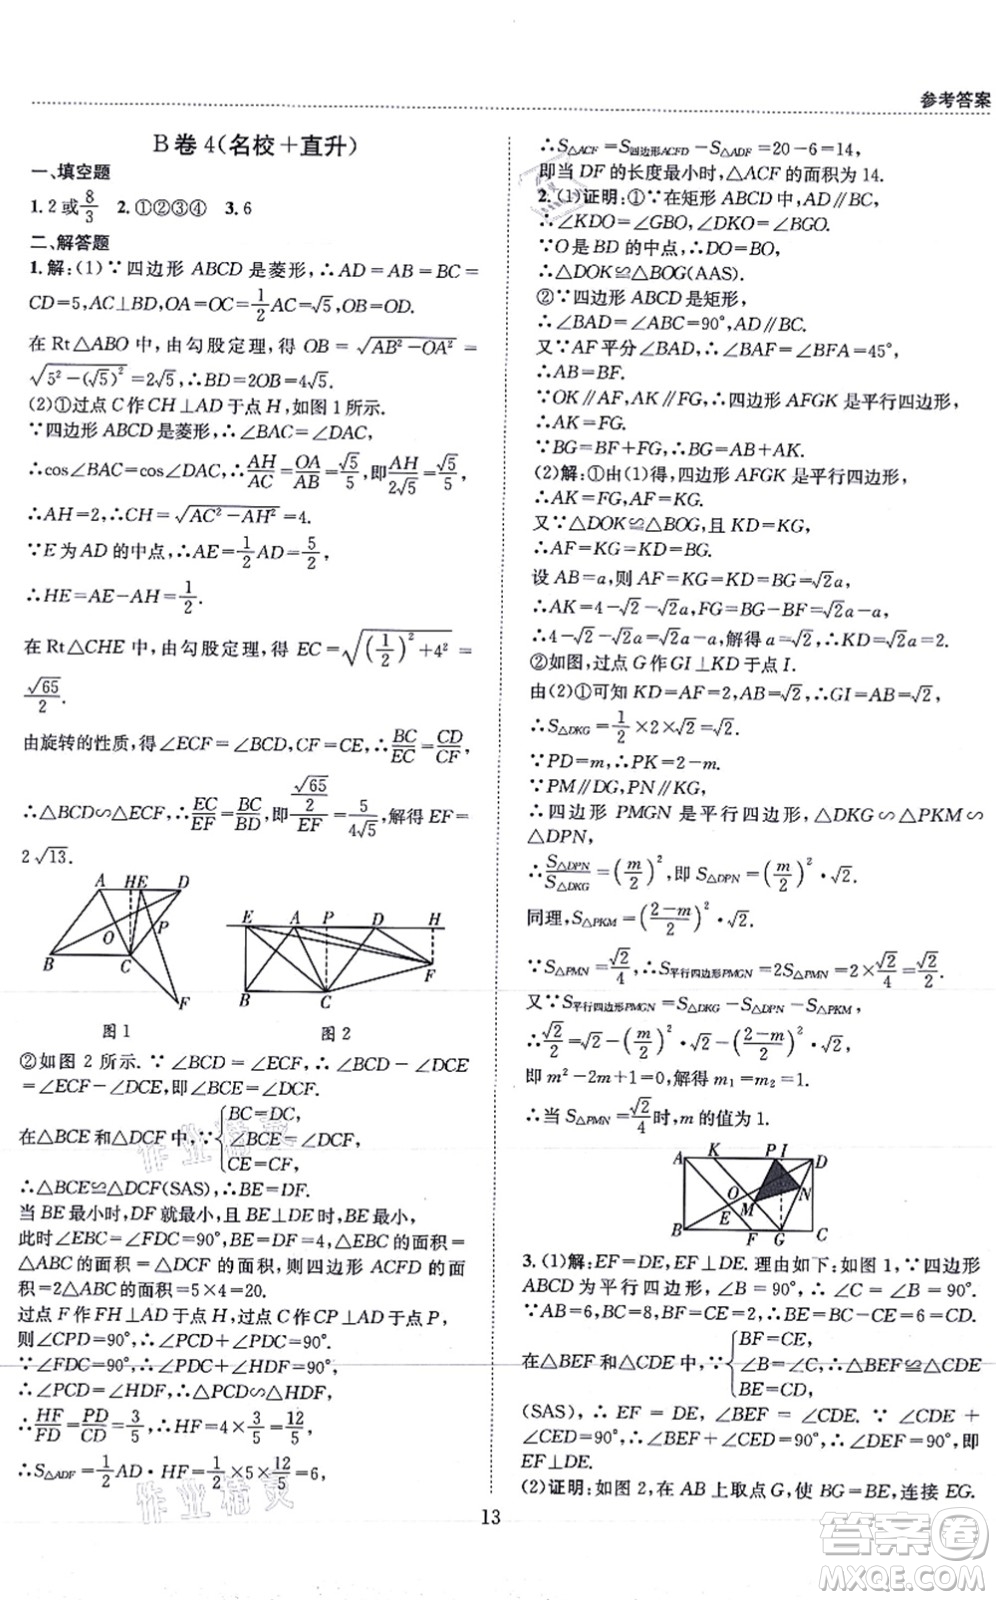 参考答案
B卷4(名校+直升)
一、填空题
1. 2或8/3 2. ①②③④ 3. 6
二、解答题
1. 解:(1)∵四边形ABCD是菱形,∴AD=AB=BC=
CD=5,AC⊥BD,OA=OC=1/2AC=√5,OB=OD.
在Rt△ABO中,由勾股定理,得OB=√(AB²-OA²)=
√(5²-(√5)²)=2√5,∴BD=2OB=4√5.
(2)①过点C作CH⊥AD于点H,如图1所示.
∵四边形ABCD是菱形,∴∠BAC=∠DAC,
∴cos∠BAC=cos∠DAC,∴AH/AC=OA/AB=√5/5,即AH/2√5=√5/5,
∴AH=2,∴CH=√(AC²-AH²)=4.
∵E为AD的中点,∴AE=1/2AD=5/2,
∴HE=AE-AH=1/2.
在Rt△CHE中,由勾股定理,得EC=√((1/2)²+4²)=
√65/2.
由旋转的性质,得∠ECF=∠BCD,CF=CE,∴BC/EC=CD/CF,
∴△BCD∽△ECF,∴EC/EF=BC/BD,即(√65/2)/EF=5/4√5,解得EF=
2√13.
A H E D
P
O
B C
F
图1
E A P D H
F
B C
图2
②如图2所示.∵∠BCD=∠ECF,∴∠BCD-∠DCE
=∠ECF-∠DCE,即∠BCE=∠DCF.
在△BCE和△DCF中,∵{BC=DC, ∠BCE=∠DCF, CE=CF,
∴△BCE≌△DCF(SAS),∴BE=DF.
当BE最小时,DF就最小,且BE⊥DE时,BE最小,
此时∠EBC=∠FDC=90°,△EBC的面积=
△ABC的面积=△DCF的面积,则四边形ACFD的面
积=2△ABC的面积=5×4=20.
过点F作FH⊥AD于点H,过点C作CP⊥AD于点P,
则∠CPD=90°,∴∠PCD+∠PDC=90°.
∵∠FDC=90°,∴∠PDC+∠HDF=90°,
∴∠PCD=∠HDF,∴△PCD∽△HDF,
∴HF/FD=PD/CD=3/5,∴HF=4×3/5=12/5,
∴S△ADF=1/2AD·HF=1/2×5×12/5=6,
∴S△ACF=S四边形ACFD-S△ADF=20-6=14,
即当DF的长度最小时,△ACF的面积为14.
2. (1)证明:①∵在矩形ABCD中,AD∥BC,
∴∠KDO=∠GBO,∠DKO=∠BGO.
∵O是BD的中点,∴DO=BO,
∴△DOK≌△BOG(AAS).
②∵四边形ABCD是矩形,
∴∠BAD=∠ABC=90°,AD∥BC.
又∵AF平分∠BAD,∴∠BAF=∠BFA=45°,
∴AB=BF.
∵OK∥AF,AK∥FG,∴四边形AFGK是平行四边形,
∴AK=FG.
∵BG=BF+FG,∴BG=AB+AK.
(2)解:①由(1)得,四边形AFGK是平行四边形,
∴AK=FG,AF=KG.
又∵△DOK≌△BOG,且KD=KG,
∴AF=KG=KD=BG.
设AB=a,则AF=KG=KD=BG=√2a,
∴AK=4-√2-√2a,FG=BG-BF=√2a-a,
∴4-√2-√2a=√2a-a,解得a=√2,∴KD=√2a=2.
②如图,过点G作GI⊥KD于点I.
由(2)①可知KD=AF=2,AB=√2,∴GI=AB=√2,
∴S△DKG=1/2×2×√2=√2.
∵PD=m,∴PK=2-m.
∵PM∥DG,PN∥KG,
∴四边形PMGN是平行四边形,△DKG∽△PKM∽
△DPN,
∴S△DPN/S△DKG=(m/2)²,即S△DPN=(m/2)²·√2.
同理,S△PKM=((2-m)/2)²·√2.
∵S△PMN=√2/4,∴S平行四边形PMGN=2S△PMN=2×√2/4=√2/2.
又∵S平行四边形PMGN=S△DKG-S△DPN-S△PKM,
∴√2/2=√2-(m/2)²·√2-((2-m)/2)²·√2,
即m²-2m+1=0,解得m₁=m₂=1.
∴当S△PMN=√2/4时,m的值为1.
A K P I D
O M N
B E F G C
3. (1)解:EF=DE,EF⊥DE. 理由如下:如图1,∵四边形
ABCD为平行四边形,∠B=90°,∴∠B=∠C=90°.
∵AB=6,BC=8,BF=CE=2,∴BE=BC-CE=6=CD.
在△BEF和△CDE中,∵{BF=CE, ∠B=∠C, BE=CD, ∴△BEF≌△CDE
(SAS),∴EF=DE,∠BEF=∠CDE.∵∠CDE+
∠CED=90°,∴∠BEF+∠CED=90°,∴∠DEF=90°,即
EF⊥DE.
(2)证明:如图2,在AB上取点G,使BG=BE,连接EG.
13
作业精灵
作业精灵
答案圈
MXQE.COM